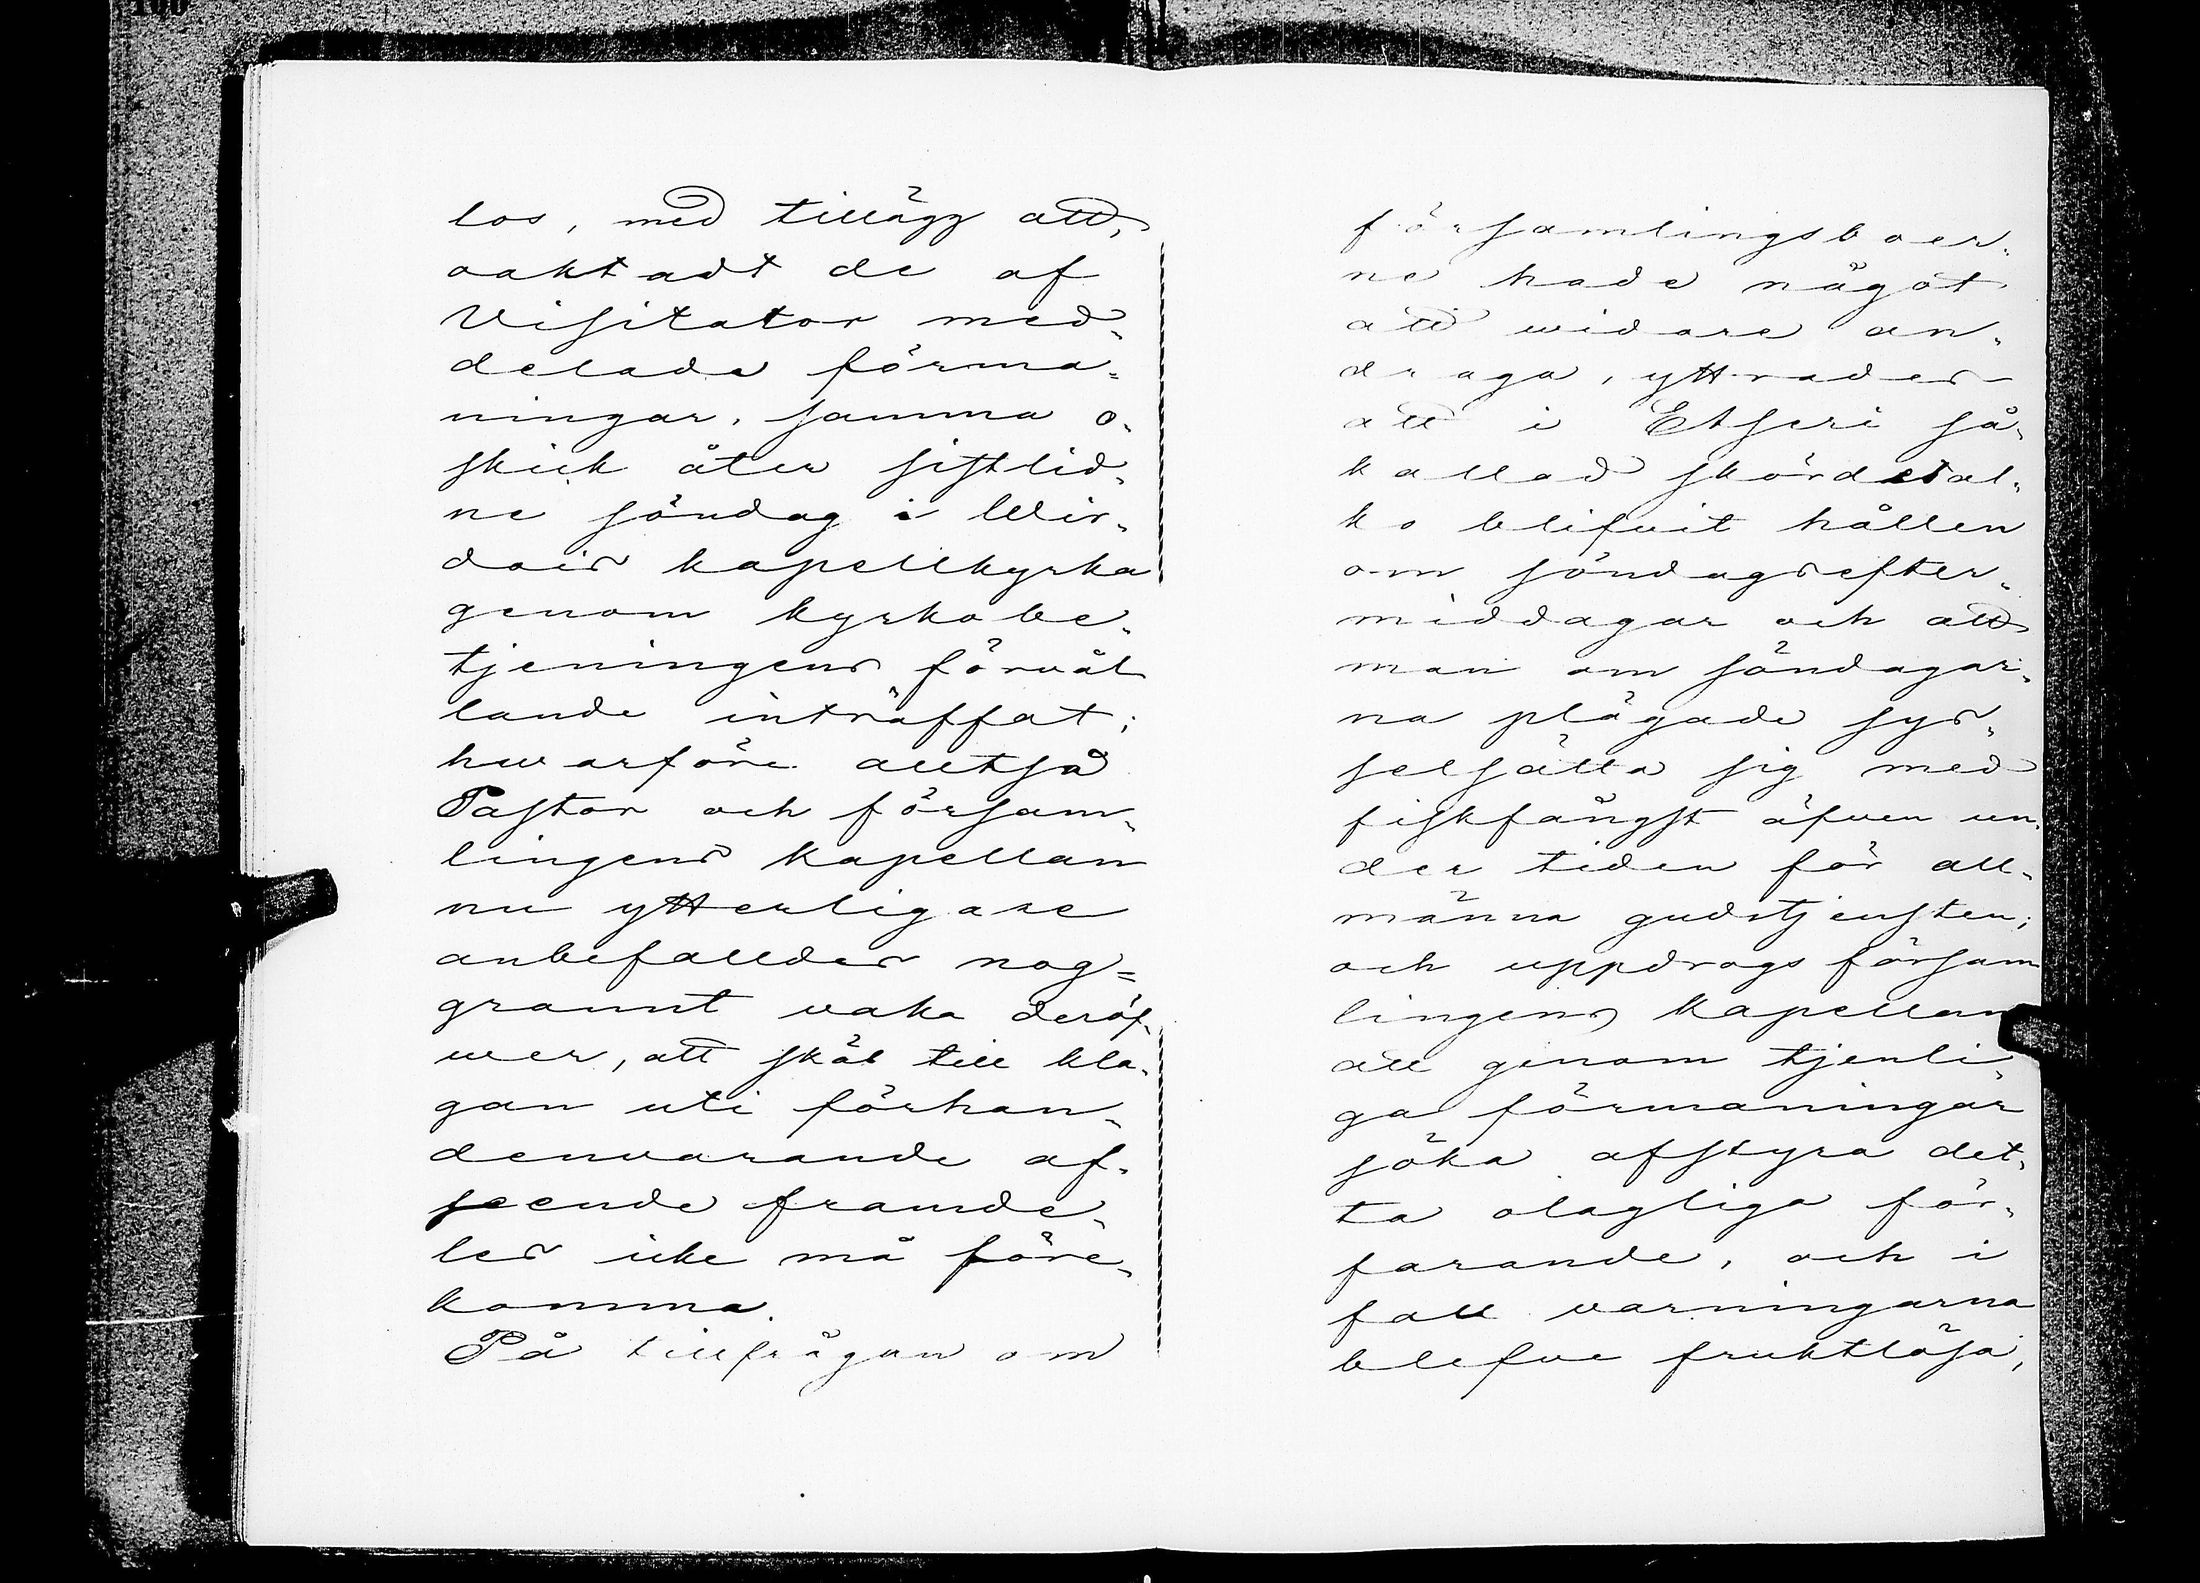 los, med tillägg att,
oaktadt de af
Visitator med-
delade förma-
ningar, samma o-
skick åter sistlid-
ne söndag i Wir-
dois kapellkyrka
genom kyrkobe-
tjeningens förvål
lande inträffat;
hwarföre alltså
Pastor och försam-
lingens Kapellan
nu ytterligare
anbefalldes nog=
grannt vaka deröf-
wer, att skäl till kla-
gan uti förhan-
denvarande af-
seende framde-
les icke må före-
komma.
På tillfrågan om
församlingsboer-
ne hade något
att widare an-
draga, yttrades
att i Etseri så-
kallad skördetal-
ko blifvit hållen
om söndagsefter-
middagar och att
man om söndagar-
na plägade sys-
selsätta sig med
fiskfångst äfven un-
der tiden för all-
männa gudstjensten;
och uppdrogs försam
lingens Kapellan
att genom tjenli-
ga förmaningar
söka afstyra det-
ta olagliga för-
farande, och i
fall varningarna
blefve fruktlösa,